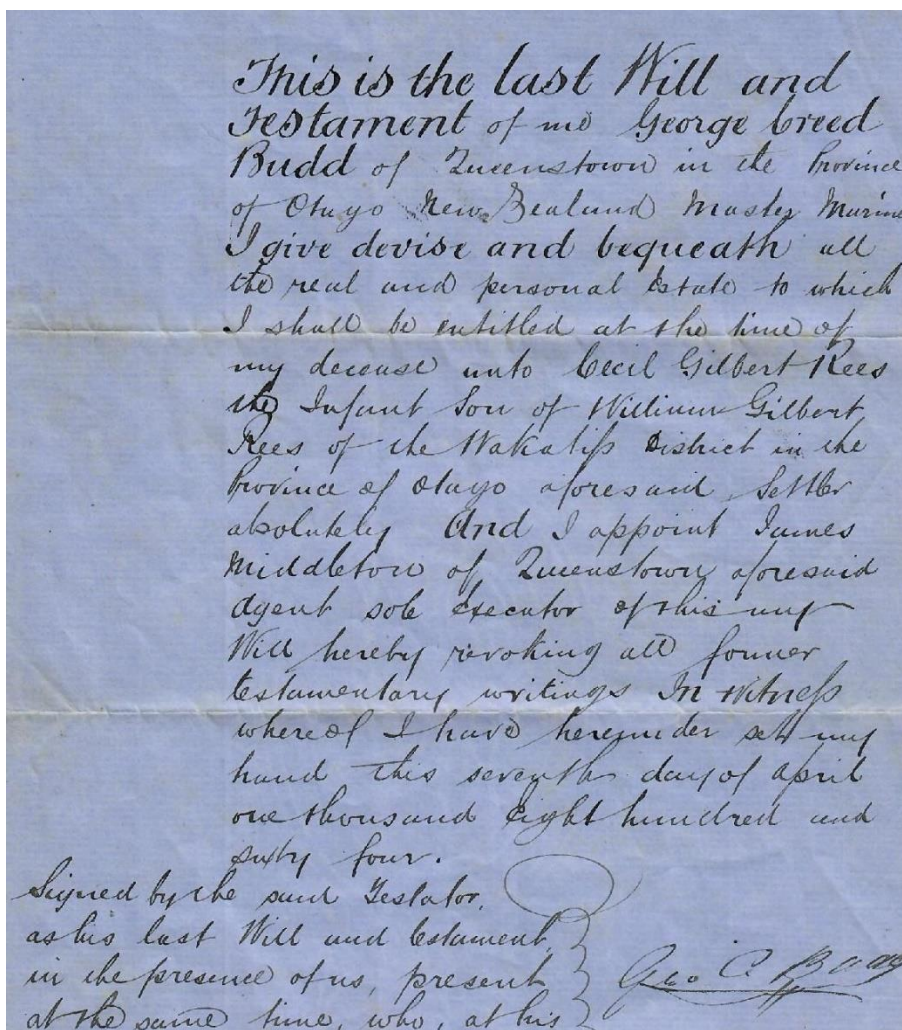 This is the last Will and
Testament of me George Creed
Budd of Queenstown in the Province
of Otago New Zealand Master Marine
I give devise and bequeath all
the real and personal Estate to which
I shall be entitled at the time of
my decease unto Cecil Gilbert Rees
the Infant Son of William Gilbert
Rees of the Wakatip District in the
Province of Otago aforesaid Settler
absolutely And I appoint James
Middleton of Queenstown aforesaid
Agent sole Executor of this my
Will hereby revoking all former
testamentary writings In Witness
whereof I have hereunder set my
hand this seventh day of April
one thousand Eight hundred and
sixty four.
Signed by the said Testator,
as his last Will and testament,
in the presence of us, present
at the same time, who, at his
Geo C Budd